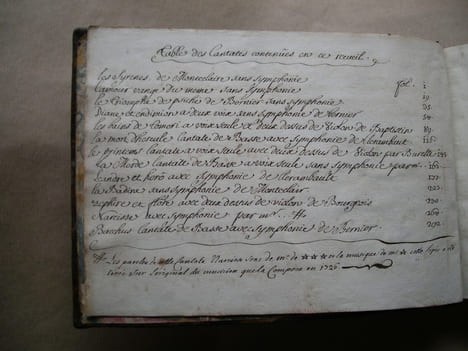 Table des Cantates contenües en ce recueil.
les Syrenes de Monteclaire sans Symphonie fol. 1
l'amour vangé du meme sans Symphonie
le triomphe de psiché de Bernier sans symphonie
Diane et Endimion a deux voix sans Symphonie de Bernier 54
les bains de Tomeri a voix seule et deux dessus de Violon de Baptistin 89
la mort d'hercule Cantate de Basse avec Symphonie de Clerambaut 115
le printems Cantate a voix seule avec deux dessus de Violon par Bourette
Cantate de Basse a voix seule sans Symphonie par
Leandre et hero avec Symphonie de Clerambault 177
la Badine sans Symphonie de Monteclair
zephire et flore avec deux dessus de violon de Bourgeois 230
Narcisse avec Symphonie par mr. 260
Bacchus Cantate de Basse avec Symphonie de Bernier 292
Les paroles de cette Cantate Narcisse sont de mr. de ☆☆☆ et la musique de mr ☆ cette copie a été
tirée sur l'original du musicien qui la Composa en 1726